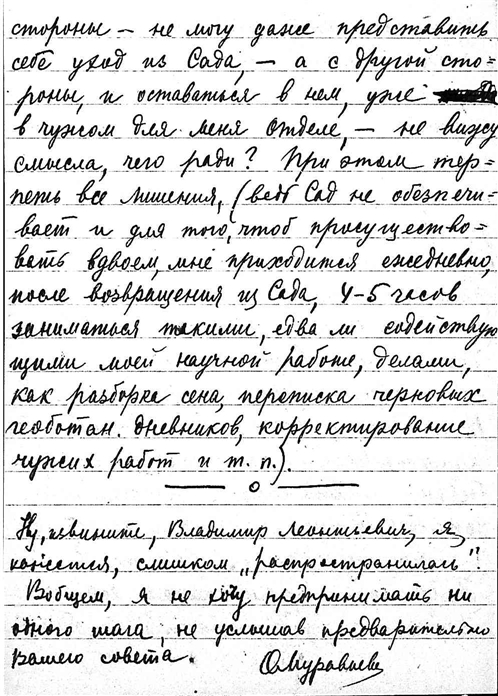 стороны — не могу даже представить
себе уход из Сада, — а с другой сто=
роны, и оставаться в нем, уже
в чужом для меня отделе, — не вижу
смысла, чего ради? При этом тер-
петь все лишения, (ведь Сад не обезпечи-
вает и для того, чтоб просущество=
вать вдвоем, мне приходится ежедневно,
после возвращения из Сада, 4-5 часов
заниматься такими, едва ли содействую
щими моей научной работе, делами,
как разборка сена, переписка черновых
геоботан. дневников, корректирование
чужих работ и т. п.).
— о —
Ну, извините, Владимир Леонтьевич, я,
кажется, слишком „распространилась".
Вобщем, я не хочу предпринимать ни
одного шага, не услышав предварительно
Вашего совета. ОМуравьева